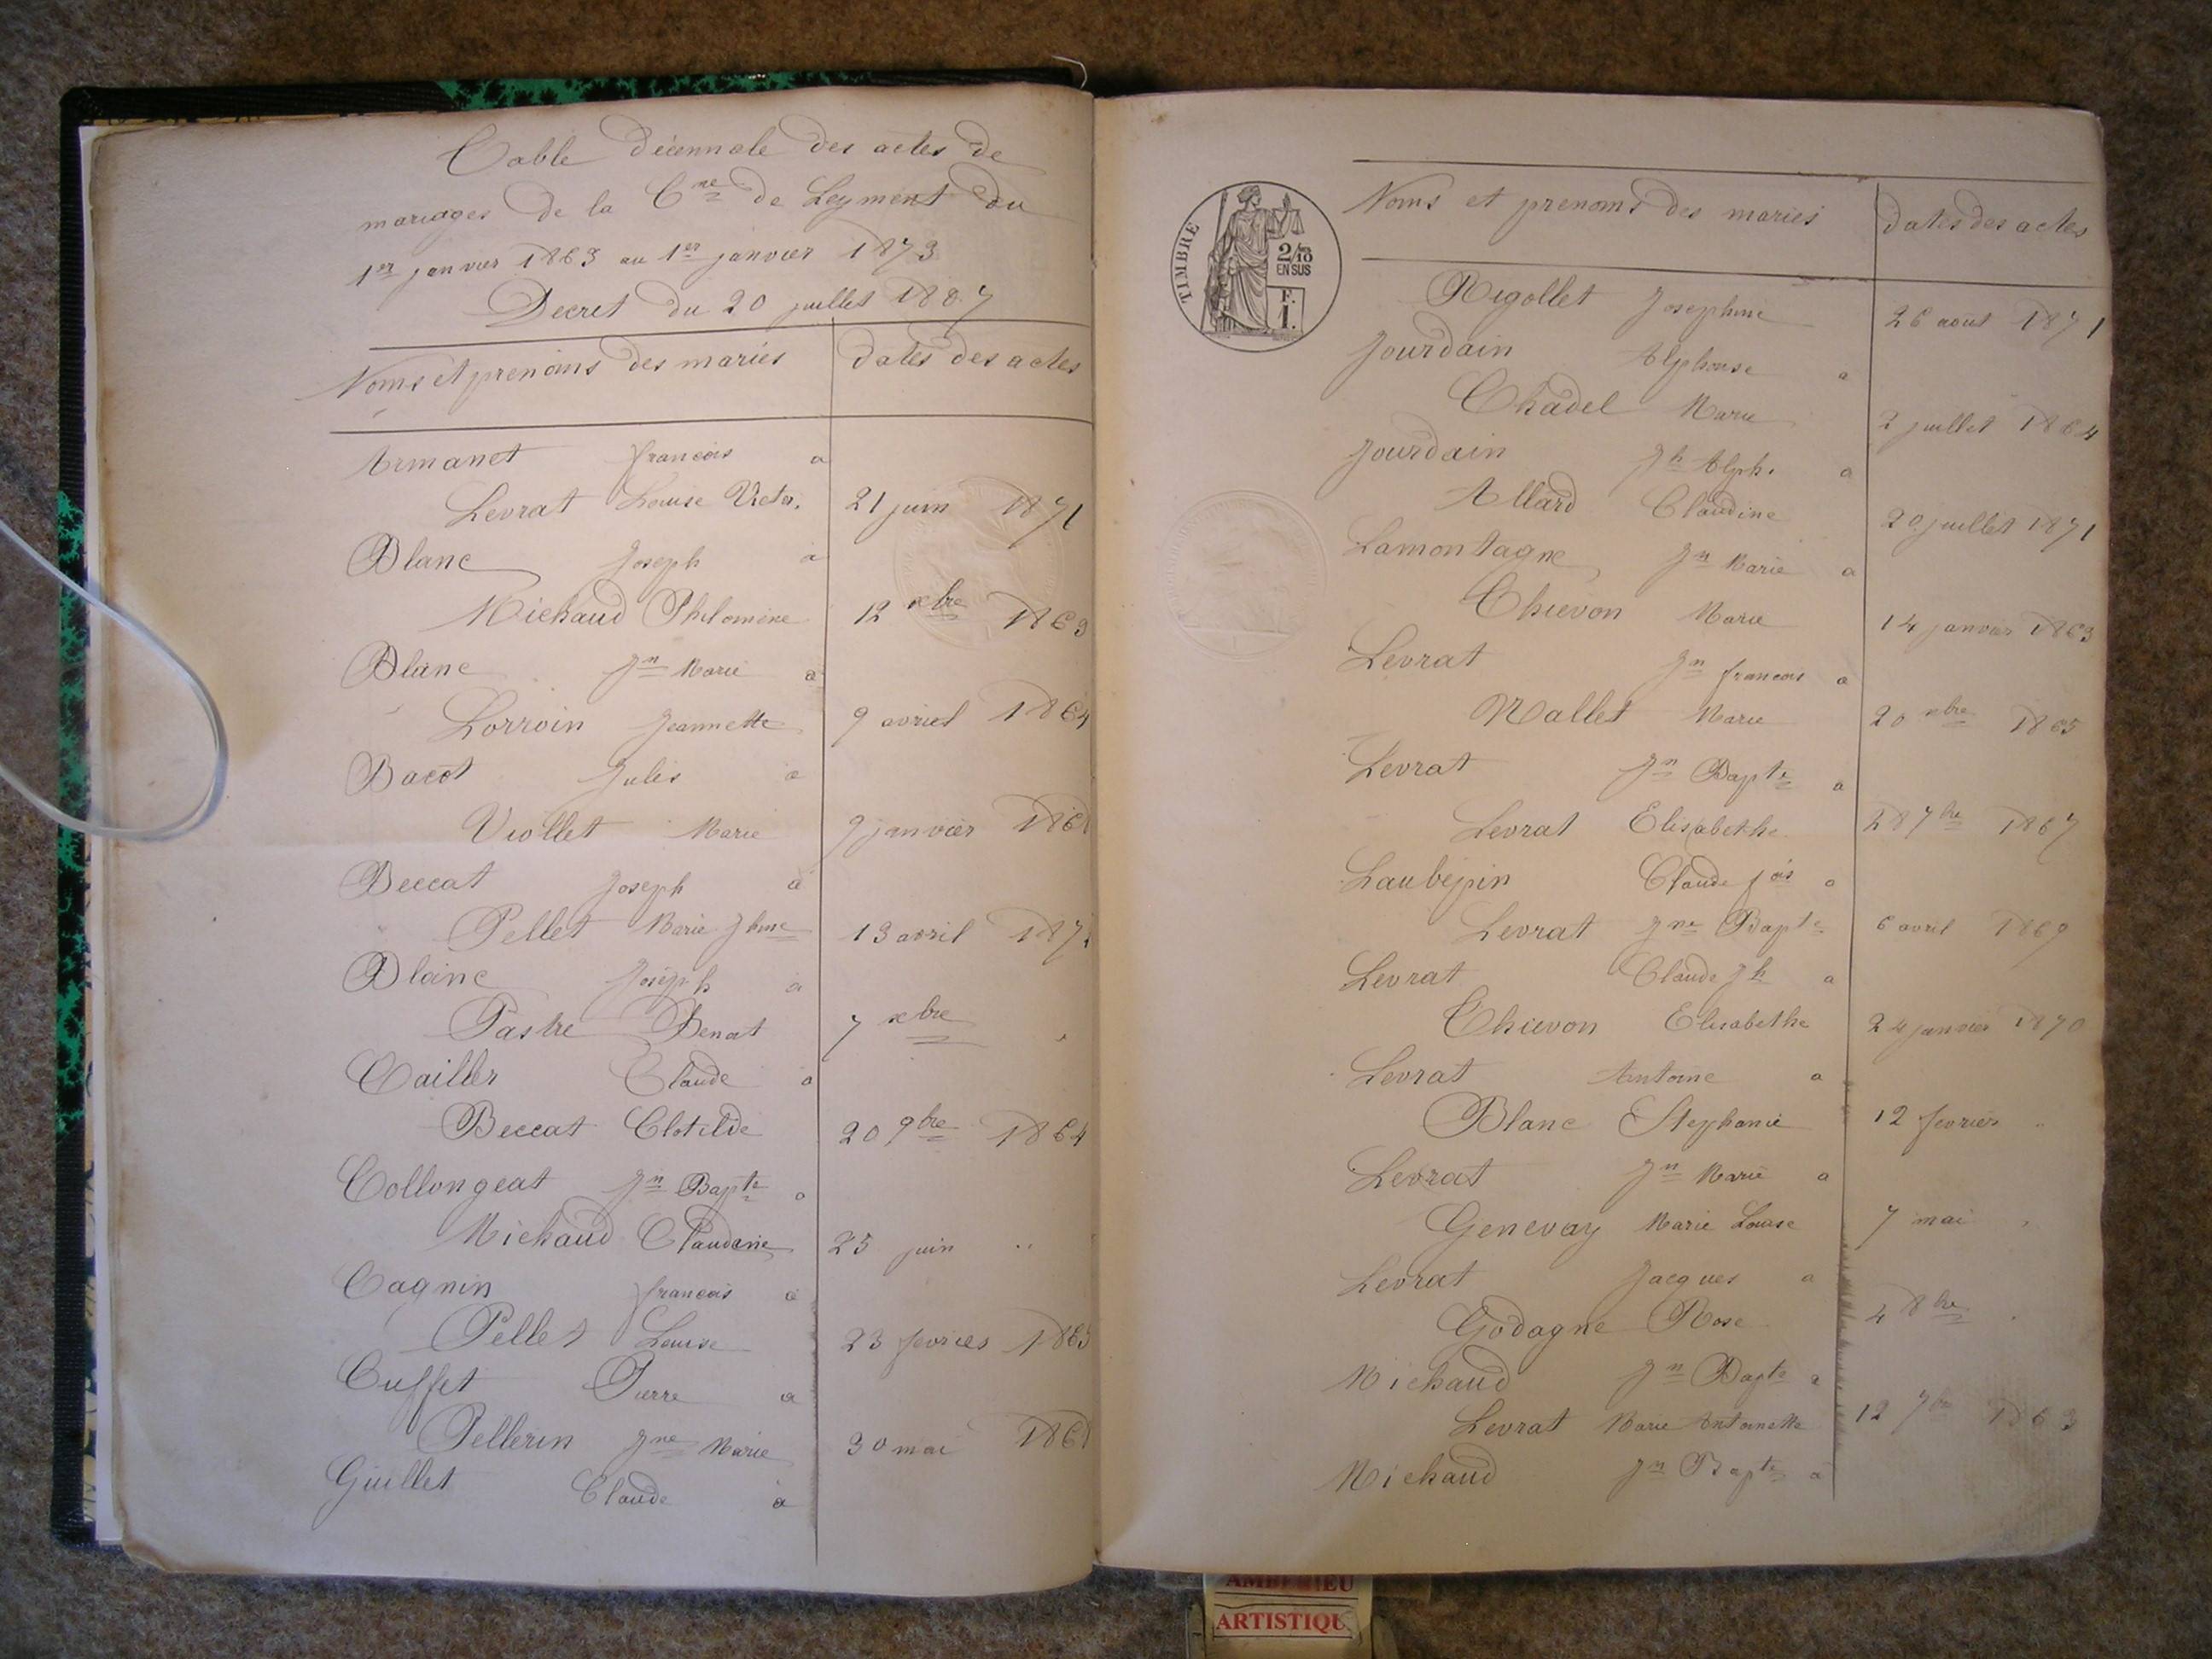 Table décennale des actes de
mariages de la Cne de Leyment du
1er janvier 1863 au 1er janvier 1873
Decret du 20 juillet 1807
Noms et prenoms des mariés dates des actes
Armanet francois a
Levrat Louise Victor. 21 juin 1871
Blanc Joseph a
Michaud Philomène 12 xbre 1863
Blanc Jn Marie a
Lorroin Jeannette 9 avriel 1864
Bacot Jules a
Viollet Marie 9 janvier
Beccat Joseph a
Pellet Marie Jhine 13 avril
Blanc Joseph a
Pastre Benat 7 xbre "
Cailler Claude a
Beccat Clotilde 20 9bre 1864
Collongeat Jn Bapte a
Michaud Claudine 25 juin "
Cagnin francois a
Pellet Louise 23 fevrier 1865
Cuffet Pierre a
Pellerin Jne Marie 30 mai
Guillet Claude a
TIMBRE
2/10
EN SUS
F.
1.
Noms et prenoms des mariés dates des actes
Rigollet Josephine 26 aout 1871
Jourdain Alphonse a
Chadel Marie 2 juillet 1864
Jourdain Jh Alph. a
Allard Claudine 20 juillet 1871
Lamontagne Jn Marie a
Thievon Marie 14 janvier 1863
Levrat Jn francois a
Mallet Marie 20 xbre 1865
Levrat Jn Bapte a
Levrat Elisabethe 28 7bre 1867
Laubépin Claude fois a
Levrat Jne Bapte 6 avril 1869
Levrat Claude Jh a
Thievon Elisabethe 24 janvier 1870
Levrat Antoine a
Blanc Stephanie 12 fevrier "
Levrat Jn Marie a
Genevay Marie Louise 7 mai "
Levrat Jacques a
Godagne Rose 4 8bre "
Michaud Jn Bapte a
Levrat Marie Antoinette 12 7bre 1863
Michaud Jn Bapte a
AMBERIEU
ARTISTIQU